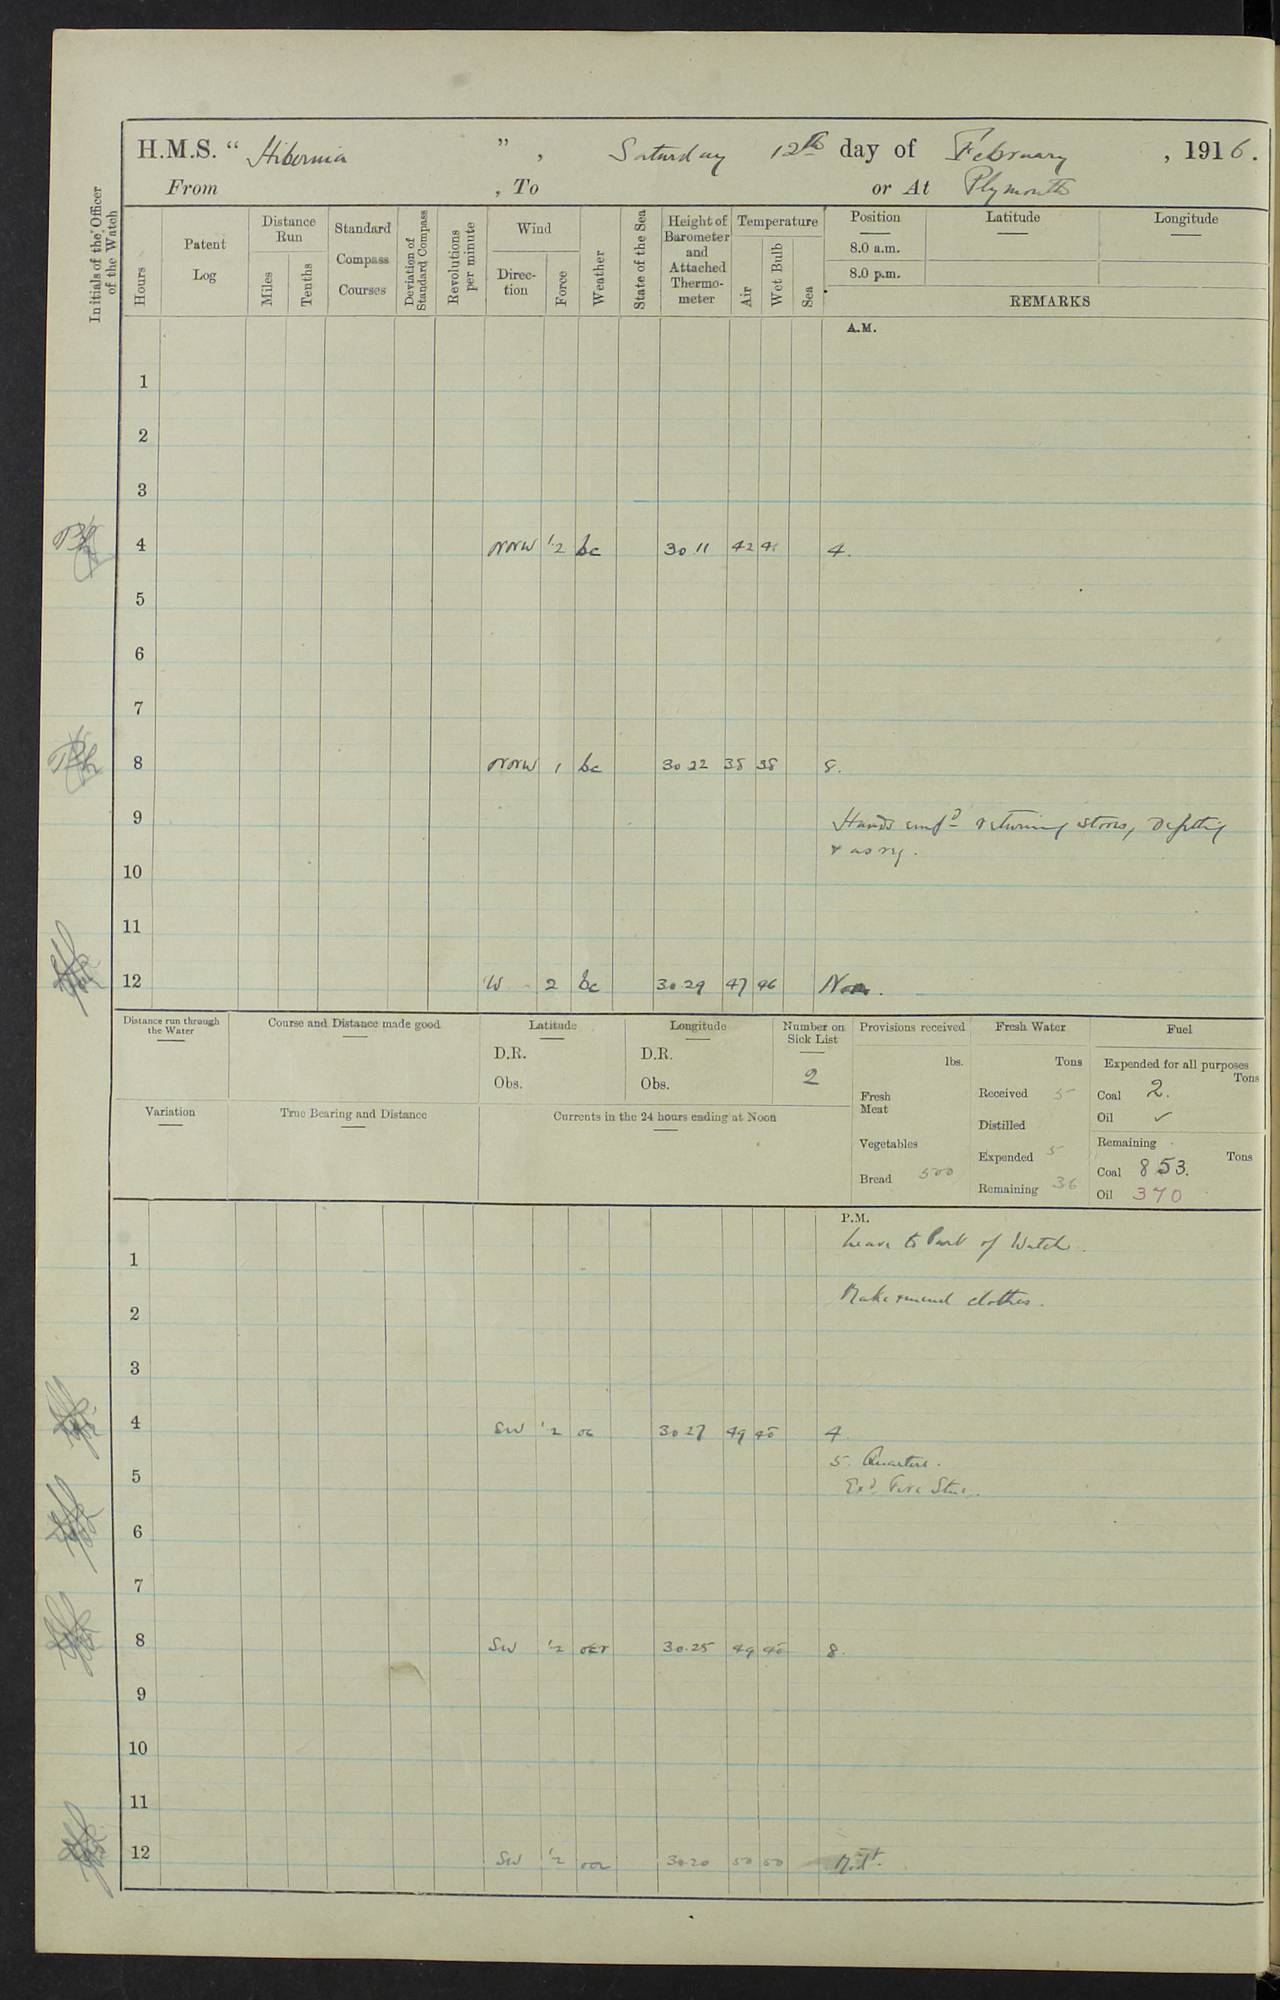 H.M.S. “ Hibernia ” , Saturday 12th day of February , 1916.
From , To or At Plymouth
Initials of the Officer of the Watch
Hours
Patent Log
Distance Run
Miles
Tenths
Standard Compass Courses
Deviation of Standard Compass
Revolutions per minute
Wind
Direction
Force
Weather
State of the Sea
Height of Barometer and Attached Thermometer
Temperature
Air
Wet Bulb
Sea
Position Latitude Longitude
8.0 a.m.
8.0 p.m.
REMARKS
A.M.
1
2
3
4 NNW 1.2 bc 30 11 42 41 4.
5
6
7
8 NNW 1 bc 30 22 38 38 8.
9 Hands empd returning stores, refitting
& as req.
10
11
12 W 2 bc 30 29 47 46 Noon.
Distance run through the Water
Course and Distance made good
Latitude
D.R.
Obs.
Longitude
D.R.
Obs.
Number on Sick List
2
Provisions received
lbs.
Fresh Meat
Vegetables
Bread 500
Fresh Water
Tons
Received 5
Distilled
Expended 5
Remaining 36
Fuel
Expended for all purposes
Tons
Coal 2.
Oil ✓
Remaining
Tons
Coal 853.
Oil 370
Variation
True Bearing and Distance
Currents in the 24 hours ending at Noon
P.M.
Leave to Part of Watch.
1
Make & mend clothes.
2
3
4 SW 1.2 oc 30 27 49 48 4.
5. Quarters.
5
Exd. Fire Stns.
6
7
8 SW 1.2 ocr 30.25 49 48 8.
9
10
11
12 SW 1.2 30 20 50 50 Midt.